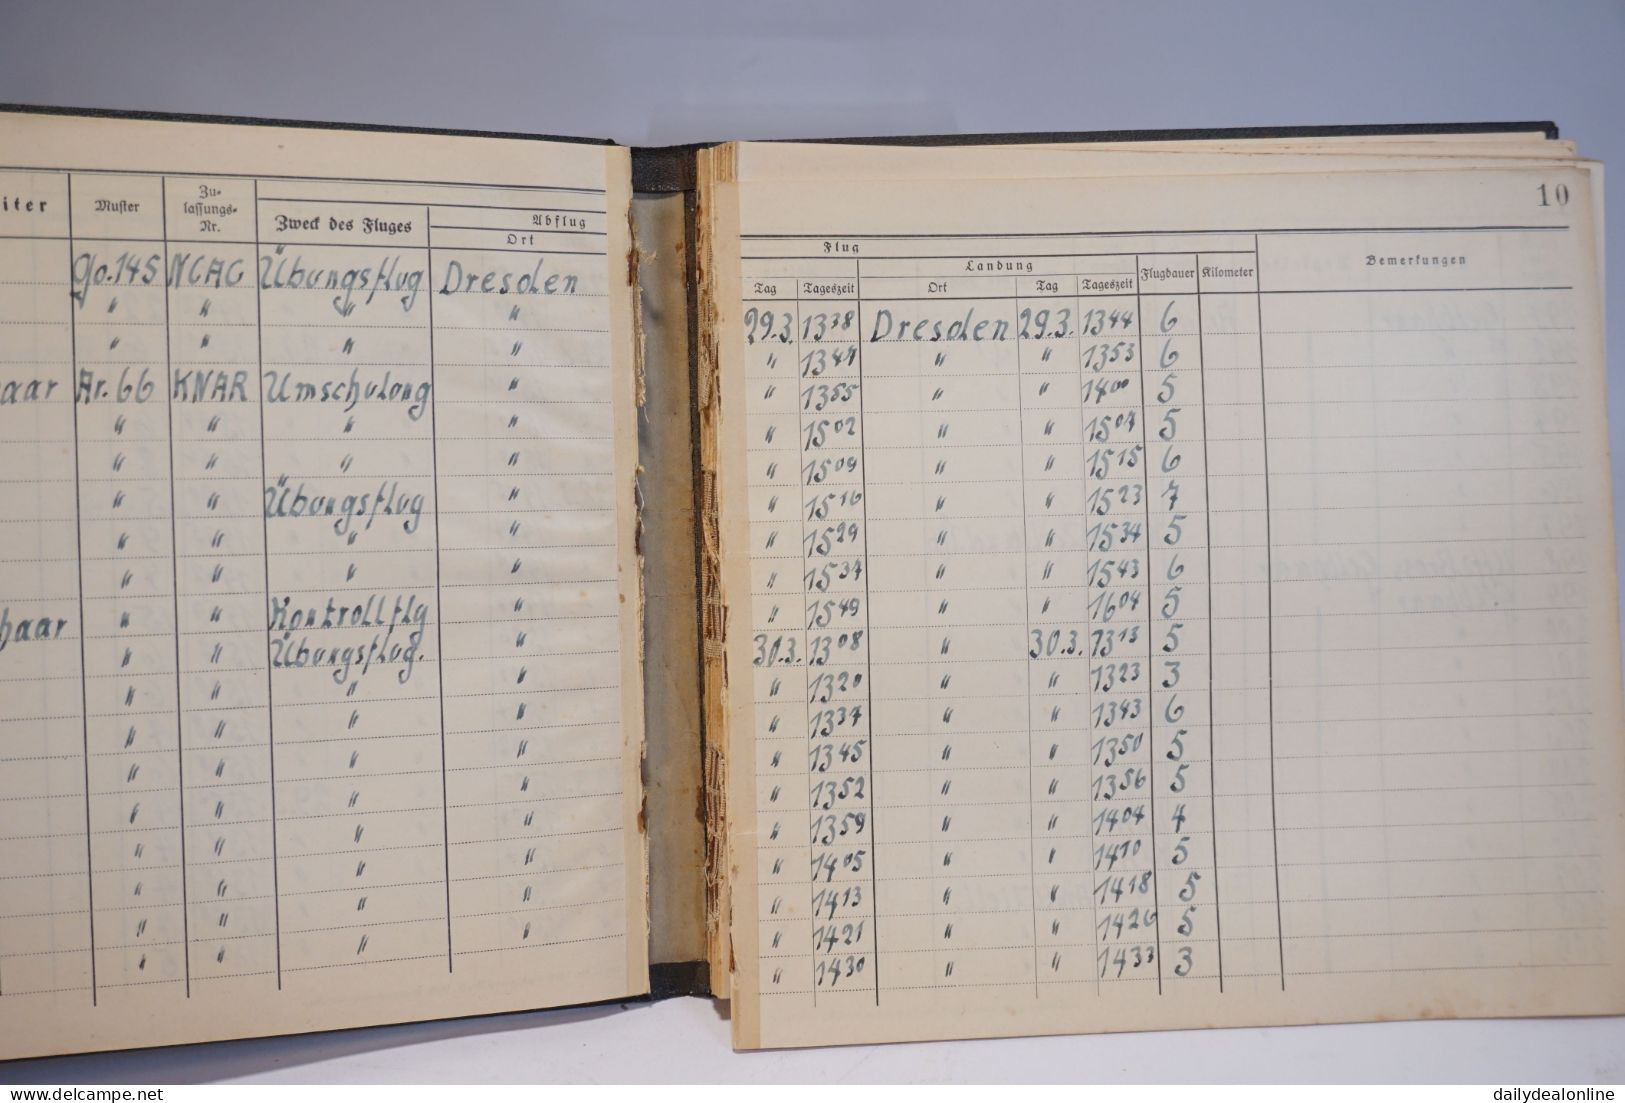 iter Muster Zu- Zweck des Fluges Abflug
lassungs- Ort
Nr.
Go.145 NCAC Übungsflug Dresden
" " " "
" " " "
aar Ar.66 KNAR Umschulung "
" " " "
" " " "
" " Übungsflug "
" " " "
" " " "
haar " " Kontrollflg "
" " Übungsflug. "
" " " "
" " " "
" " " "
" " " "
" " " "
" " " "
" " " "
" " " "
10
Flug
Landung Flugdauer Kilometer Bemerkungen
Tag Tageszeit Ort Tag Tageszeit
29.3. 1338 Dresden 29.3. 1344 6
" 1347 " " 1353 6
" 1355 " " 1400 5
" 1502 " " 1507 5
" 1509 " " 1515 6
" 1516 " " 1523 7
" 1529 " " 1534 5
" 1537 " " 1543 6
" 1549 " " 1604 5
30.3. 1308 " 30.3. 1313 5
" 1320 " " 1323 3
" 1337 " " 1343 6
" 1345 " " 1350 5
" 1352 " " 1356 5
" 1359 " " 1404 4
" 1405 " " 1410 5
" 1413 " " 1418 5
" 1421 " " 1426 5
" 1430 " " 1433 3
dailydealonline